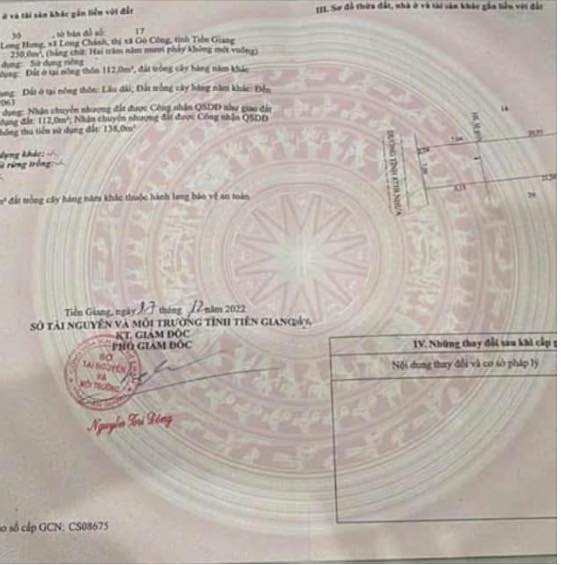 ở và tài sản khác gắn liền với đất
30 , tờ bản đồ số: 17
Long Hưng, xã Long Chánh, thị xã Gò Công, tỉnh Tiền Giang
250,0m², (bằng chữ: Hai trăm năm mươi phẩy không mét vuông)
dụng: Sử dụng riêng
dụng: Đất ở tại nông thôn 112,0m², đất trồng cây hàng năm khác
dụng: Đất ở tại nông thôn: Lâu dài; Đất trồng cây hàng năm khác: Đến
2063
dụng: Nhận chuyển nhượng đất được Công nhận QSDĐ như giao đất
dụng đất: 112,0m²; Nhận chuyển nhượng đất được Công nhận QSDĐ
không thu tiền sử dụng đất: 138,0m²
dựng khác: -/-
rừng trồng: -/-
m² đất trồng cây hàng năm khác thuộc hành lang bảo vệ an toàn
Tiền Giang, ngày 17 tháng 12 năm 2022
SỞ TÀI NGUYÊN VÀ MÔI TRƯỜNG TỈNH TIỀN GIANG
KT. GIÁM ĐỐC
PHÓ GIÁM ĐỐC
SỞ
TÀI NGUYÊN
VÀ
MÔI TRƯỜNG
Nguyễn Trí Đông
số cấp GCN: CS08675
III. Sơ đồ thửa đất, nhà ở và tài sản khác gắn liền với đất
ĐƯỜNG TỈNH
IV. Những thay đổi sau khi cấp
Nội dung thay đổi và cơ sở pháp lý